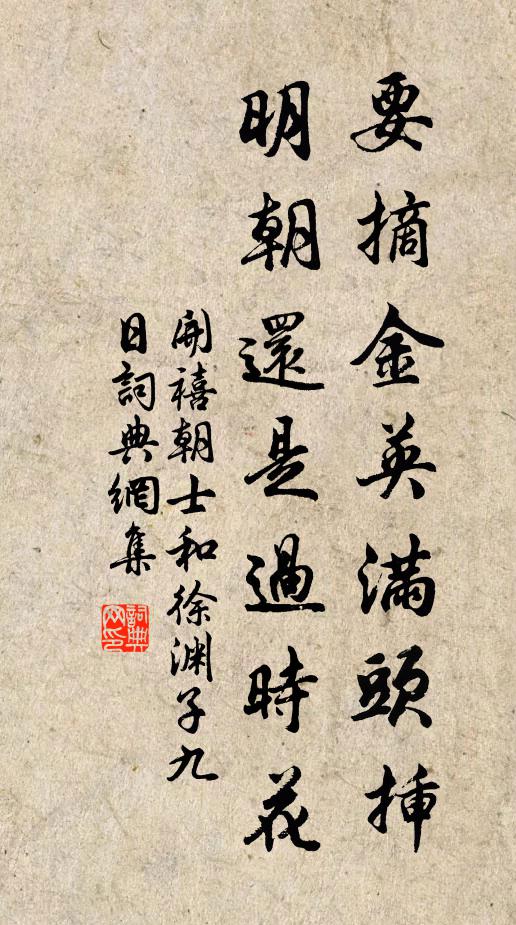 要摘金英滿頭插
明朝還是過時花
開禧朝士和徐淵子九
日詞典網集
詞典網印